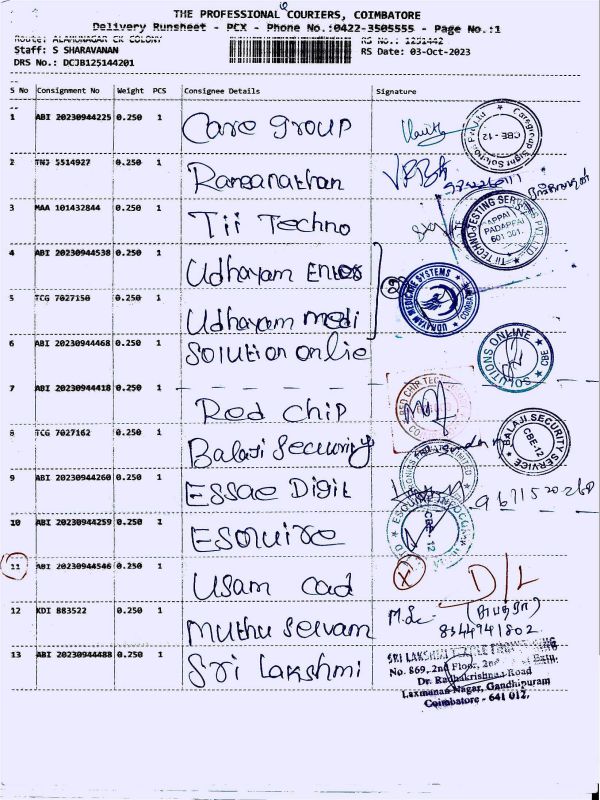 THE PROFESSIONAL COURIERS, COIMBATORE
Delivery Runsheet - PCX - Phone No.:0422-3505555 - Page No.:1
Route: ALAMUNAGAR CK COLONY RS No.: 1251442
Staff: S SHARAVANAN RS Date: 03-Oct-2023
DRS No.: DCJB125144201
S No Consignment No Weight PCS Consignee Details Signature
1 ABI 20230944225 0.250 1 Care group
CBE - 12
2 TNJ 5514927 0.250 1
3 MAA 101432844 0.250 1 Tii Techno
TII TECHNO TESTING SERVICES PVT.LTD
PADAPPAI
601 301.
4 ABI 20230944538 0.250 1 Udhayam Enter
5 TCG 7027150 0.250 1 Udhayam medi
2
UDHAYAM MEDICARE SYSTEMS
6 ABI 20230944468 0.250 1 Solution onlie
SOLUTIONS ONLINE CBE
7 ABI 20230944418 0.250 1 Red chip
RED CHIP TEC
8 TCG 7027162 0.250 1 Balaji Security
BALAJI SECURITY SERVICE
CBE-12
9 ABI 20230944260 0.250 1 ESSae Digit
9671520268
10 ABI 20230944259 0.250 1 Esquire
CBE 12
11 ABI 20230944546 0.250 1 Usam cad
X D/L
12 KDI 883522 0.250 1 Muthu Selvam
8344941802
13 ABI 20230944488 0.250 1 Sri Lakshmi
SRI LAKSHMI
No. 869, 2nd Floor, 2nd
Dr. Radhakrishnan Road
Laxmanan Nagar, Gandhipuram
Coimbatore - 641 012.